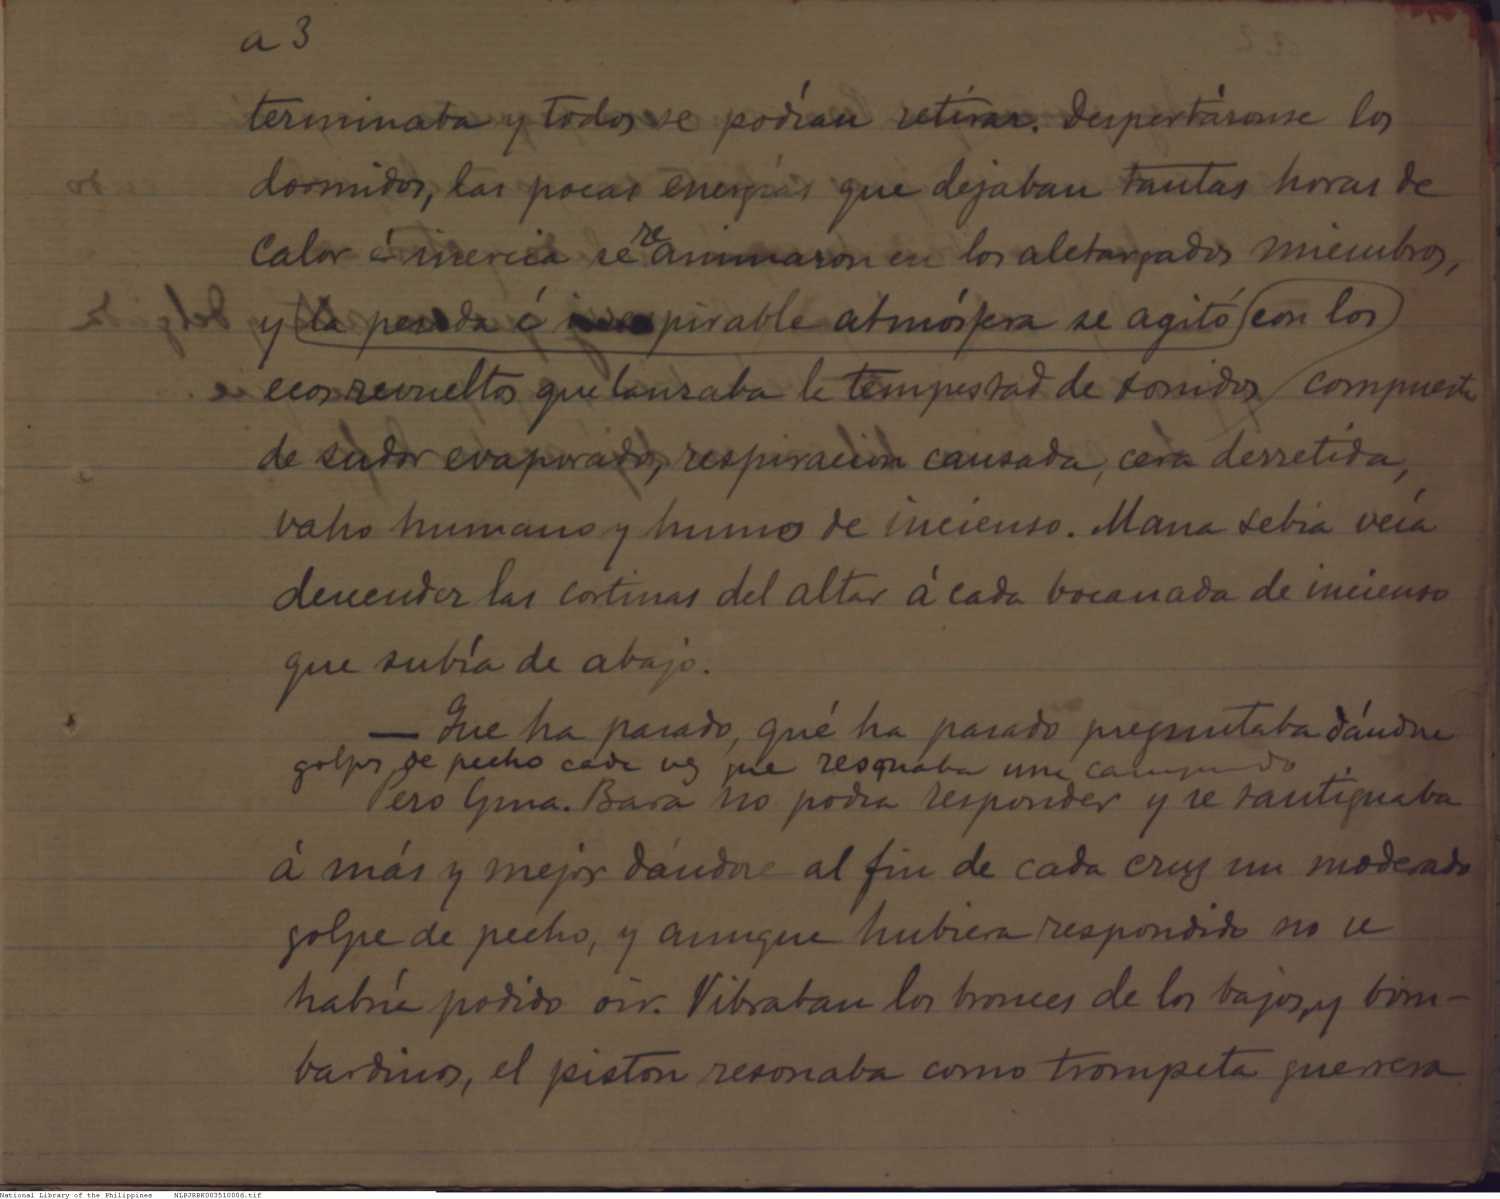 a 3
terminaba y todos se podían retirar. Despertáronse los
dormidos, las pocas energías que dejaban tantas horas de
calor é inercia se reanimaron en los aletargados miembros,
y la pesada é irrespirable atmósfera se agitó con los
ecos revueltos que lanzaba la tempestad de sonidos compuesta
de sudor evaporado, respiración causada, cera derretida,
vaho humano y humo de incienso. Mana Sebia veía
decender las cortinas del altar á cada bocanada de incienso
que subía de abajo.
— Que ha pasado, qué ha pasado preguntaba dándose
golpes de pecho cada vez que resonaba una
Pero Gma. Bara no podía responder y se santiguaba
á más y mejor dándose al fin de cada cruz un moderado
golpe de pecho, y aunque hubiera respondido no se
habría podido oir. Vibraban los bronces de los bajos, y bom-
bardinos, el piston resonaba como trompeta guerrera
National Library of the Philippines NLPJRBK003510006.tif